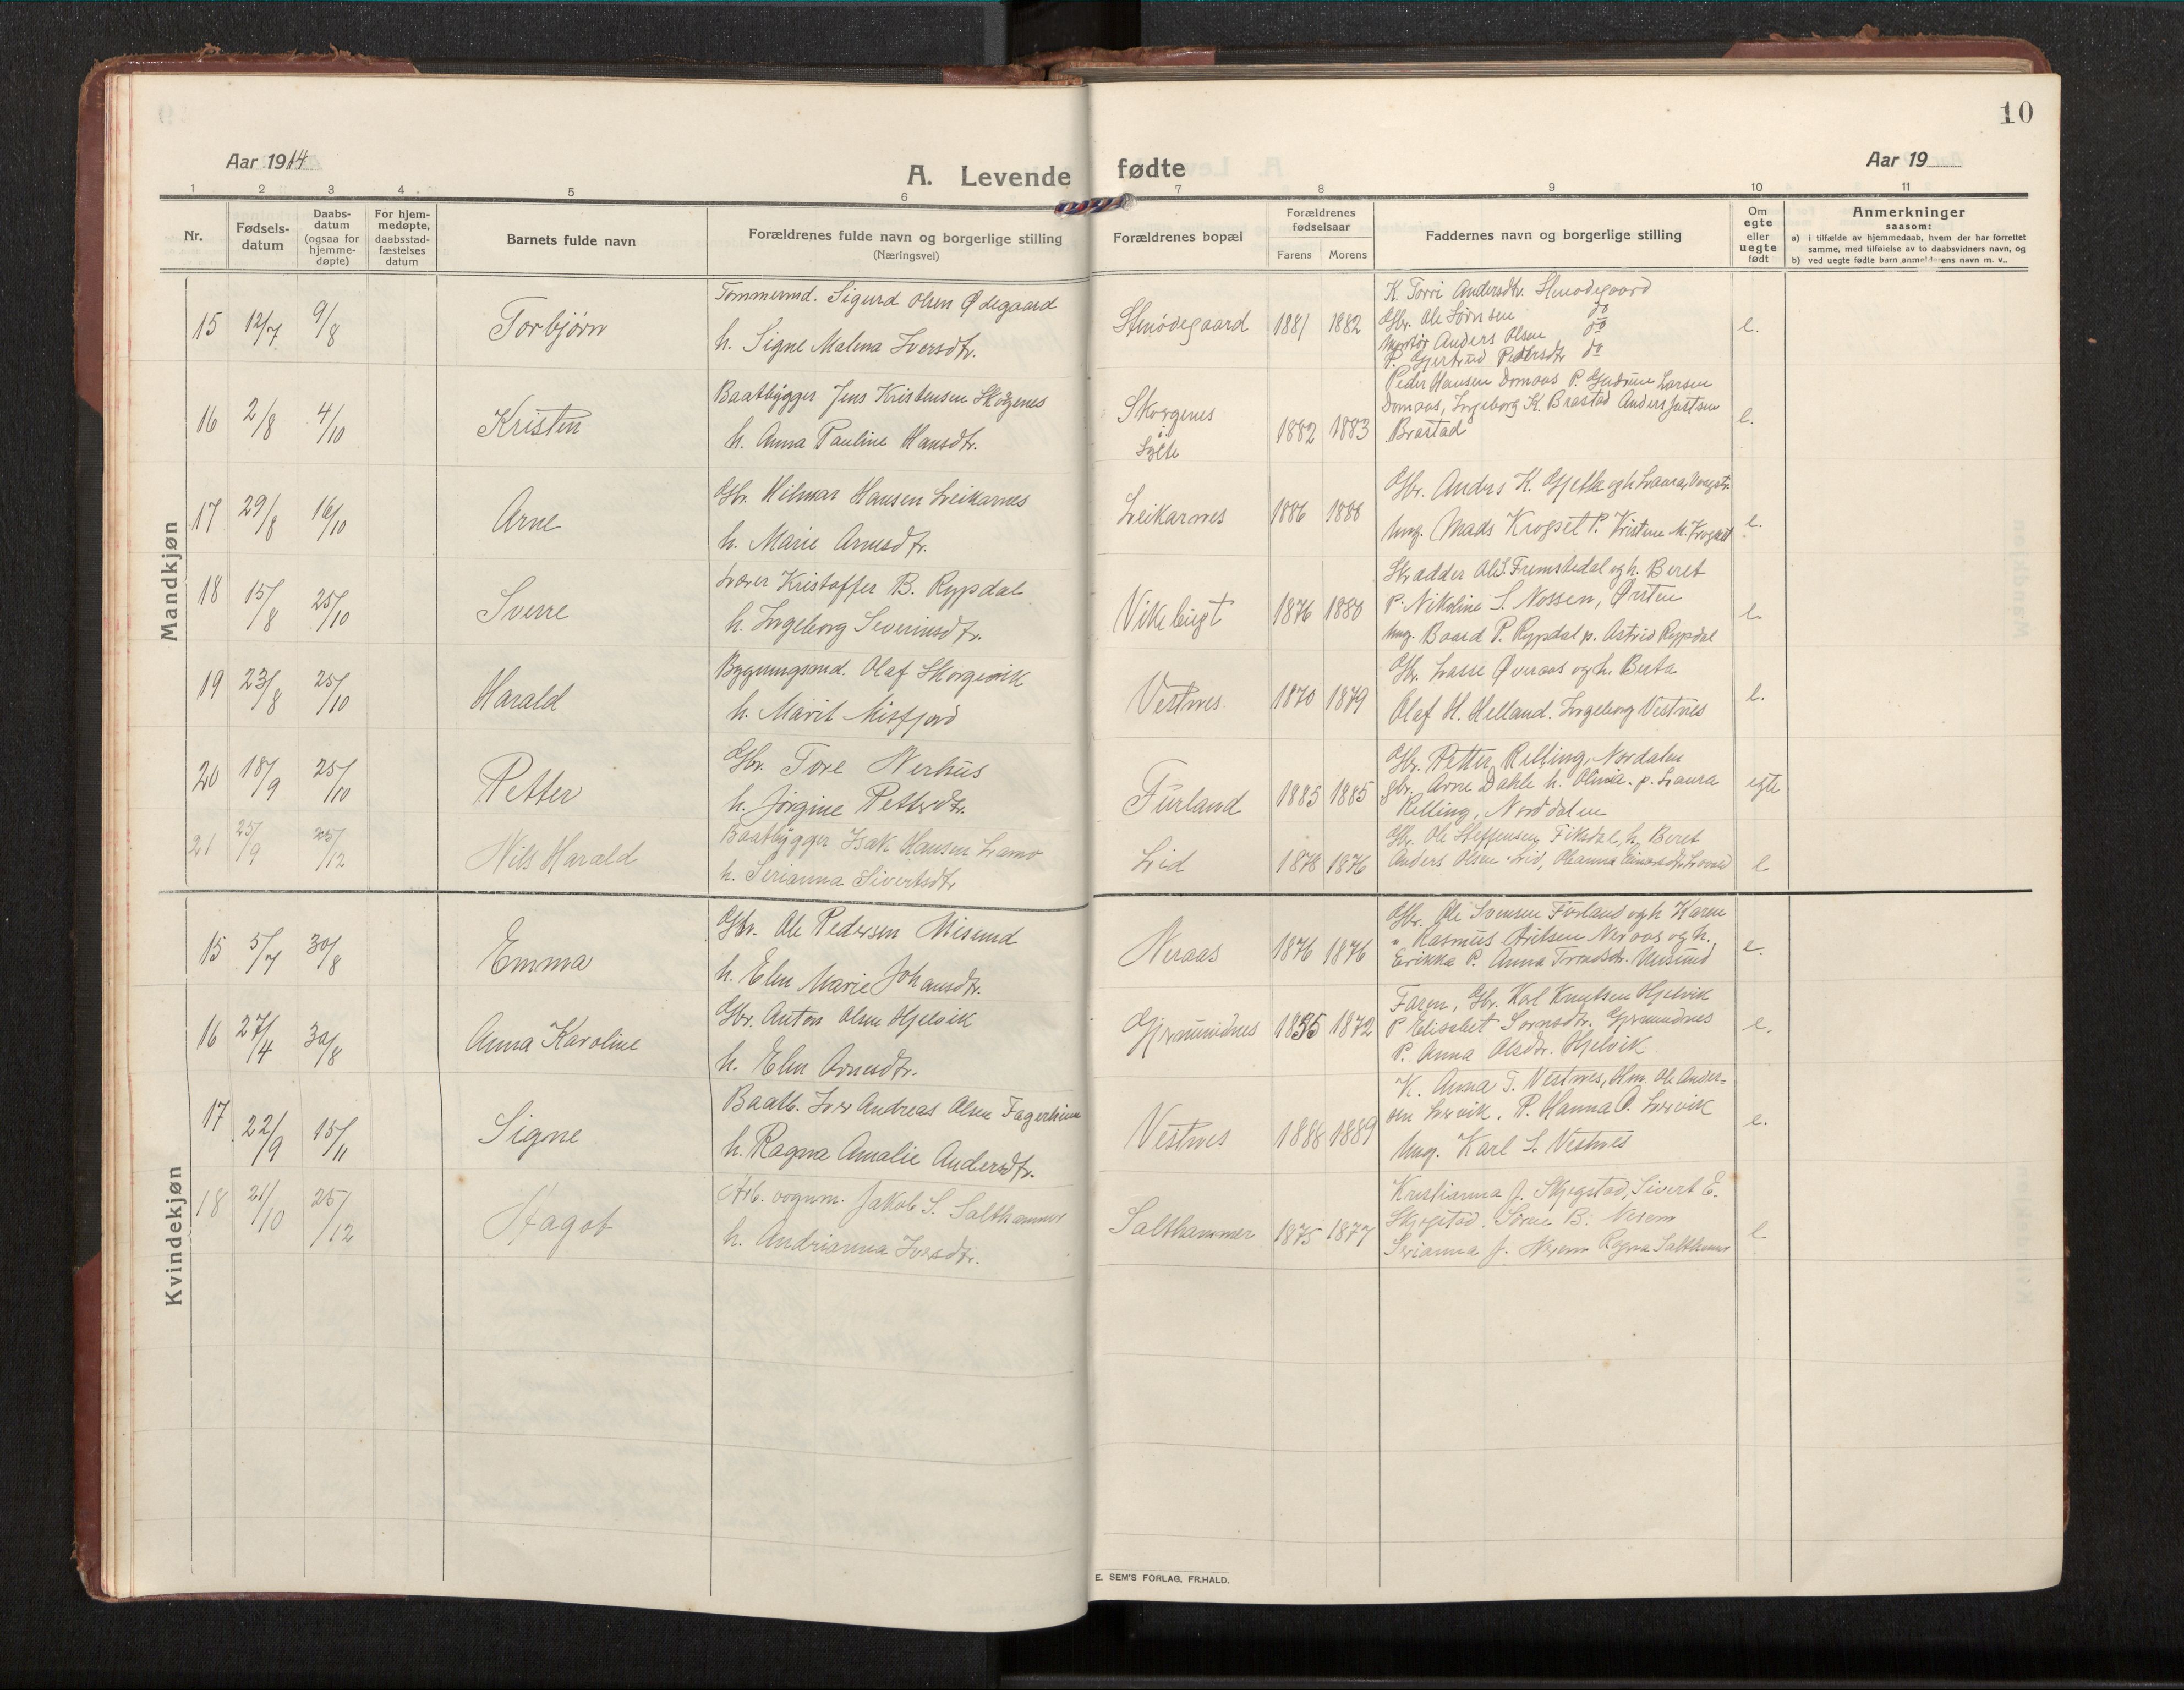 10
Aar 1914
A. Levende fødte
Aar 19
1 2 3 4 5 6 7 8 9 10 11
Nr.
Fødsels-
datum
Daabs-
datum
(ogsaa for
hjemme-
døpte)
For hjem-
medøpte,
daabsstad-
fæstelses
datum
Barnets fulde navn
Forældrenes fulde navn og borgerlige stilling
(Næringsvei)
Forældrenes bopæl
Forældrenes
fødselsaar
Farens
Morens
Faddernes navn og borgerlige stilling
Om
egte
eller
uegte
født
Anmerkninger
saasom:
a) i tilfælde av hjemmedaab, hvem der har forrettet
samme, med tilføielse av to daabsvidners navn, og
b) ved uegte fødte barn anmelderens navn m. v..
Mandkjøn
15 12/7 9/8 Torbjørn
Tømmermd. Sigurd Olsen Ødegaard
h. Signe Malena Iversdtr.
Stenødegaard 1881 1882
K. Torri Andersdtr. Stenødegaard
Gbr. Ole Sørnsen do
Anders Olsen do
P. Gjertrud Pedersdtr do
e.
16 2/8 4/10 Kristen
Baatbygger Jens Kristensen Skorgenes
h. Anna Pauline Hansdtr.
Skorgenes
i
Sylte
1882 1883
Peder Hansen Domaas P. Gudrun Larsen
Domaas, Ingeborg K. Brastad Anders Jostsen
Brastad
e.
17 29/8 16/10 Arne
Gbr. Hilmar Hansen Leikarnes
h. Marie Arnesdtr.
Leikarnes 1886 1888
Gbr. Anders K. Gjelle og h. Laura,
Ung. Mads Krogset P. Kristine M. Krogset
e.
18 15/8 25/10 Sverre
Lærer Kristoffer B. Rypdal
h. Ingeborg Severinsdtr.
Vikebugt 1876 1880
Skrædder Ole S. Fremstedal og h. Beret
P. Nikoline S. Nossen, Ørsten
Ung. Baard P. Rypdal p. Astrid Rypdal
e.
19 23/8 25/10 Harald
Bygningsmd. Olaf Skorgevik
h. Marit Misfjord
Vestnes. 1870 1879
Gbr. Lasse Øveraas og h. Berta
Olaf H. Helland. Ingeborg Vestnes
e.
20 18/9 25/10 Petter
Gbr. Tore Nerhus
h. Jørgine Pettersdtr.
Furland 1885 1885
Gbr. Petter Relling, Nordalen
gbr. Arne Dahle h. Olivia. p. Laura
Relling, Norddalen
egte
21 25/9 25/12 Nils Harald
Baatbygger Isak Hansen
h. Serianna Sivertsdtr
Lid 1878 1876
Gbr. Ole Steffensen Fiksdal, h. Beret
Anders Olsen Lid, Ohanna
e
Kvindekjøn
15 5/7 30/8 Emma
Gbr. Ole Pedersen Misund
h. Elen Marie Johansdtr.
Neraas 1876 1876
Gbr. Ole Svensen Furland og h. Karen
" Rasmus Eriksen Neraas og h.
Erikka P. Anna Misund
e.
16 27/4 30/8 Anna Karoline
Gbr. Anton Olsen Hjelvik
h. Elen Arnesdtr.
Gjermundnes 1855 1872
Faren, Gbr. Karl Knutsen Hjelvik
P Elisabet Sørnsdtr. Gjermundnes
P. Anna Olsdtr. Hjelvik
e.
17 22/9 15/11 Signe
Baatb. Iver Andreas Olsen Fagerheim
h. Ragna Amalie Andersdtr.
Vestnes 1888 1889
K. Anna T. Vestnes, Ole Ander-
sen Lervik. P. Hanna O. Lervik
Ung. Karl S. Vestnes
e.
18 21/10 25/12 Dagot
Arb. Jakob S. Salthammer
h. Andrianna Iversdtr.
Salthammer 1875 1877
Kristianna J. Skjegstad, Sivert E.
Skjegstad. Sørne B. Nerem
Serianna J. Nerem Ragna Salthammer
e
E. SEM'S FORLAG, FR.HALD.